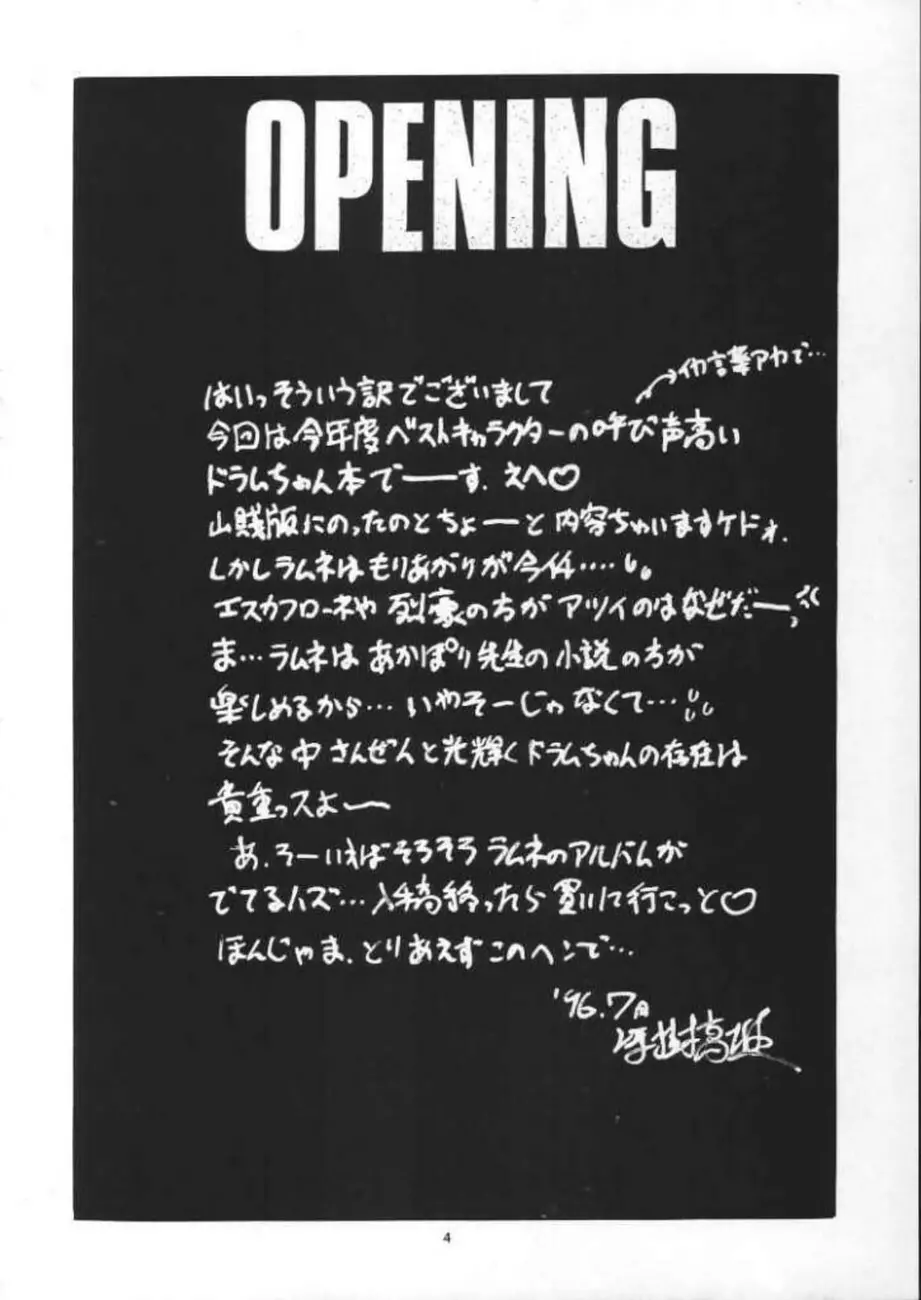 OPENING
→イカ言葉アカで…
はいっそういう訳でございまして
今回は今年度ベストキャラクターの呼び声高い
ドラムちゃん本でーーす.えへ♡
山賊版にのったのとちょーーと内容ちゃいますケドォ.
しかしラムネはもりあがりが今イチ‥‥
エスカフローネや烈豪の方がアツイのはなぜだーー
ま…ラムネはあかほり先生の小説の方が
楽しめるから…いやそーじゃなくて…
そんな中さんぜんと光輝くドラムちゃんの存在は
貴重っスよーー
あ.そーいえばそろそろラムネのアルバムが
でてるハズ…入稿終ったら買いに行こっと♡
ほんじゃま.とりあえずこのヘンで…
'96.7月
4